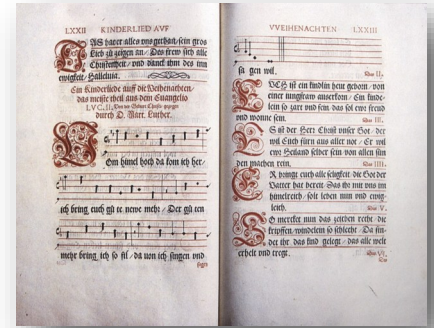 LXXII KINDERLIED AVF
DAS hat er alles vns gethan / sein gros
Lieb zů zeigen an / Des frew sich alle
Christenheit / vnd danck ihm des inn
ewigkeit / Halleluia.
Ein Kinderliede auff die Weihenachten /
das meiste theil aus dem Euangelio
LVC. II,
durch D. Mart. Luther.
VOm himel hoch da kom ich her /
ich bring euch gů te newe mehr / Der gů ten
mehr bring ich so fil / da von ich singen vnd
sagen
VVEIHENACHTEN LXXIII
sa gen wil.
II.
EVCH ist ein kindlin heut geborn / von
einer iungfraw auserkorn / Ein kinde-
lein so zart vnd fein / das sol ewr freud
vnd wonne sein.
III.
ES ist der Herr Christ vnser Got / der
wil Euch fürn aus aller not / Er wil
ewr Heiland selber sein / von allen sün
den machen rein.
IIII.
ER bringt euch alle seligkeit / die Got der
Vatter hat bereit / Das ihr mit vns im
himelreich / solt leben nun vnd ewig-
leich.
V.
SO mercket nun das zeichen recht / die
krippen / windelein so schlecht / Da fin-
det ihr das kind gelegt / das alle welt
erhelt vnd tregt.
VI.